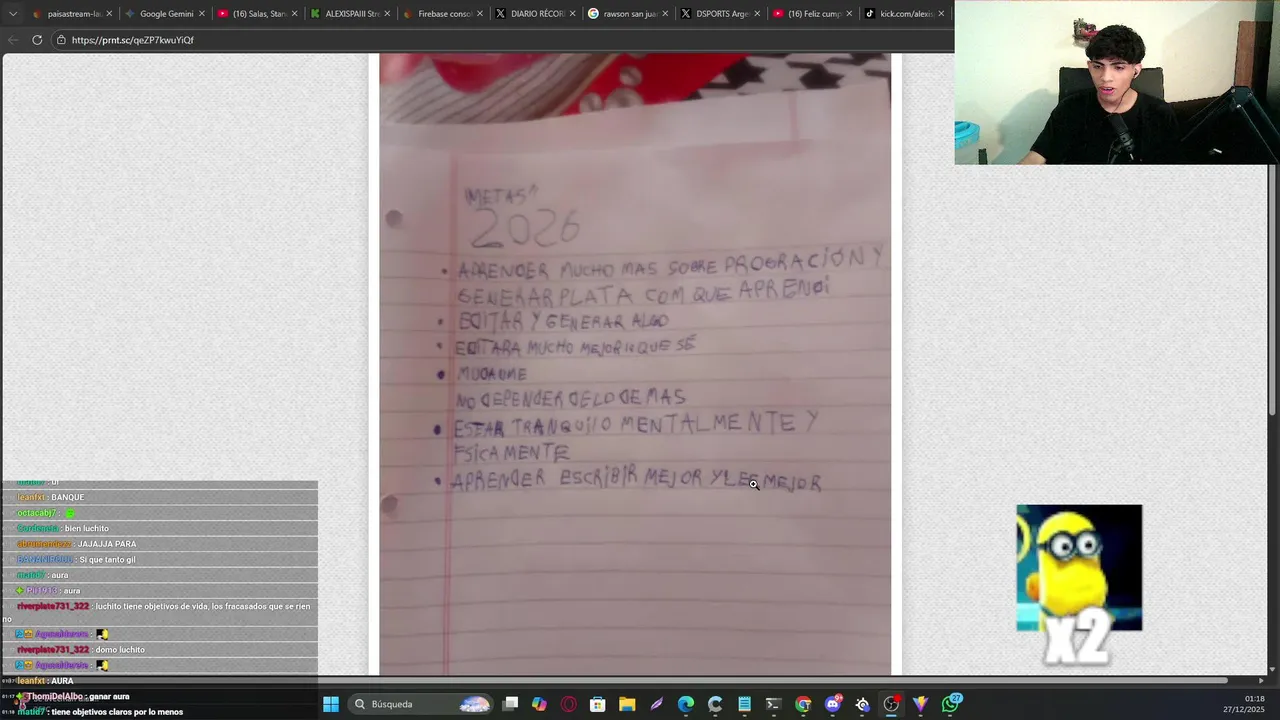 paisastream-la
Google Gemini
(16) Salas, Stan
ALEXISPAIII Stre
Firebase conso
DIARIO RÉCOR
rawson san jua
DSPORTS Arge
(16) Feliz cump
kick.com/alexis
https://prnt.sc/qeZP7kwuYiQf
"METAS"
2026
• APRENDER MUCHO MAS SOBRE PROGRACIÓN Y
GENERAR PLATA COM QUE APRENDI
• EDITAR Y GENERAR ALGO
• EDITARA MUCHO MEJOR LO QUE SÉ
• MUDARME
NO DEPENDER DE LO DE MAS
• ESTAR TRANQUILO MENTALMENTE Y
FSICAMENTE
• APRENDER ESCRIBIR MEJOR Y LEE MEJOR
leanfxt : BANQUE
octacabj7 :
: bien luchito
: JAJAJJA PARA
: Si que tanto gil
matid7 : aura
: aura
riverplate731_322 : luchito tiene objetivos de vida, los fracasados que se rien
no
riverplate731_322 : domo luchito
leanfxt : AURA
ThomiDelAlbo : ganar aura
matid7 : tiene objetivos claros por lo menos
x2
Búsqueda
27
01:18
27/12/2025